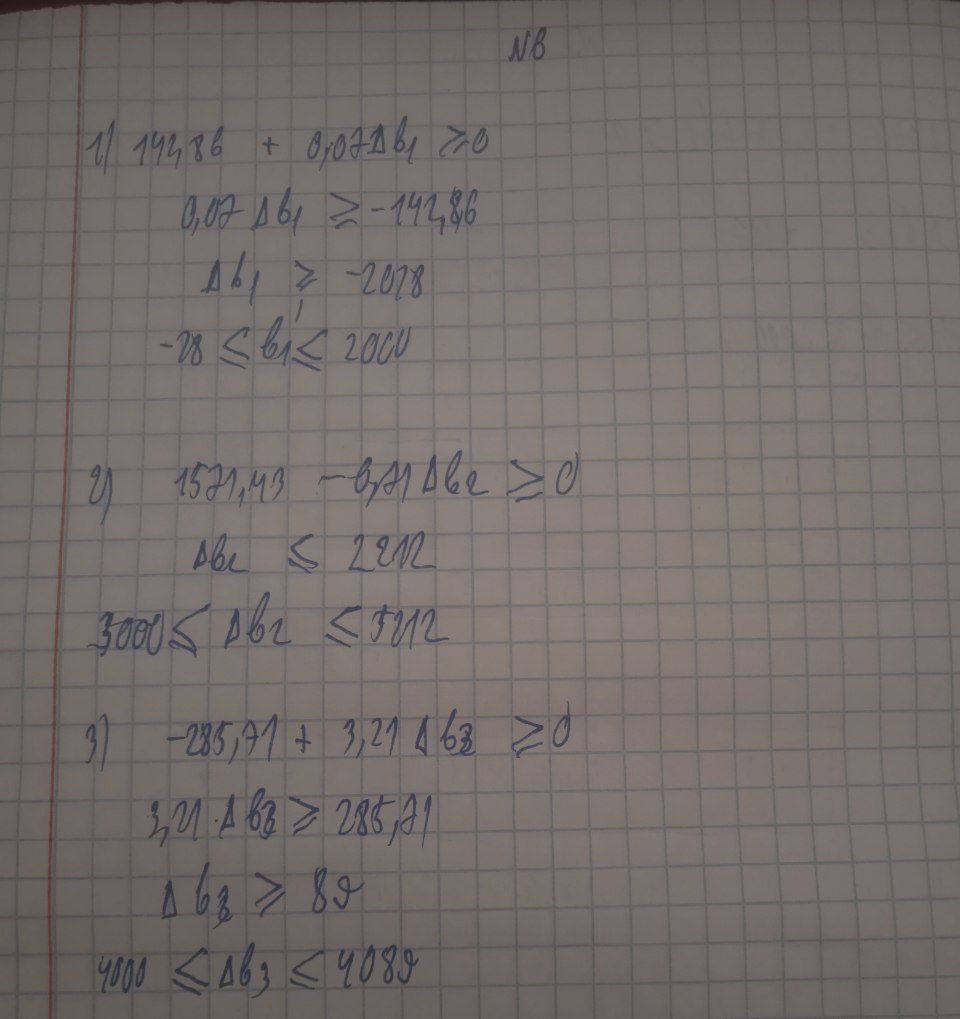 NB
1) 142,86 + 0,07Δb₁ ≥ 0
0,07 Δb₁ ≥ -142,86
Δb₁ ≥ -2028
-28 ≤ b₁' ≤ 2000
2) 1571,43 - 0,71 Δb₂ ≥ 0
Δb₂ ≤ 2212
3000 ≤ Δb₂ ≤ 5212
3) -285,71 + 3,21 Δb₃ ≥ 0
3,21 · Δb₃ ≥ 285,71
Δb₃ ≥ 89
4000 ≤ Δb₃ ≤ 4089